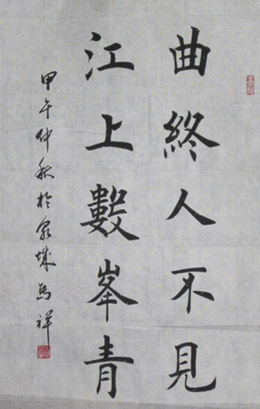 曲終人不見
江上數峯青
甲午仲秋於泉城馬祥